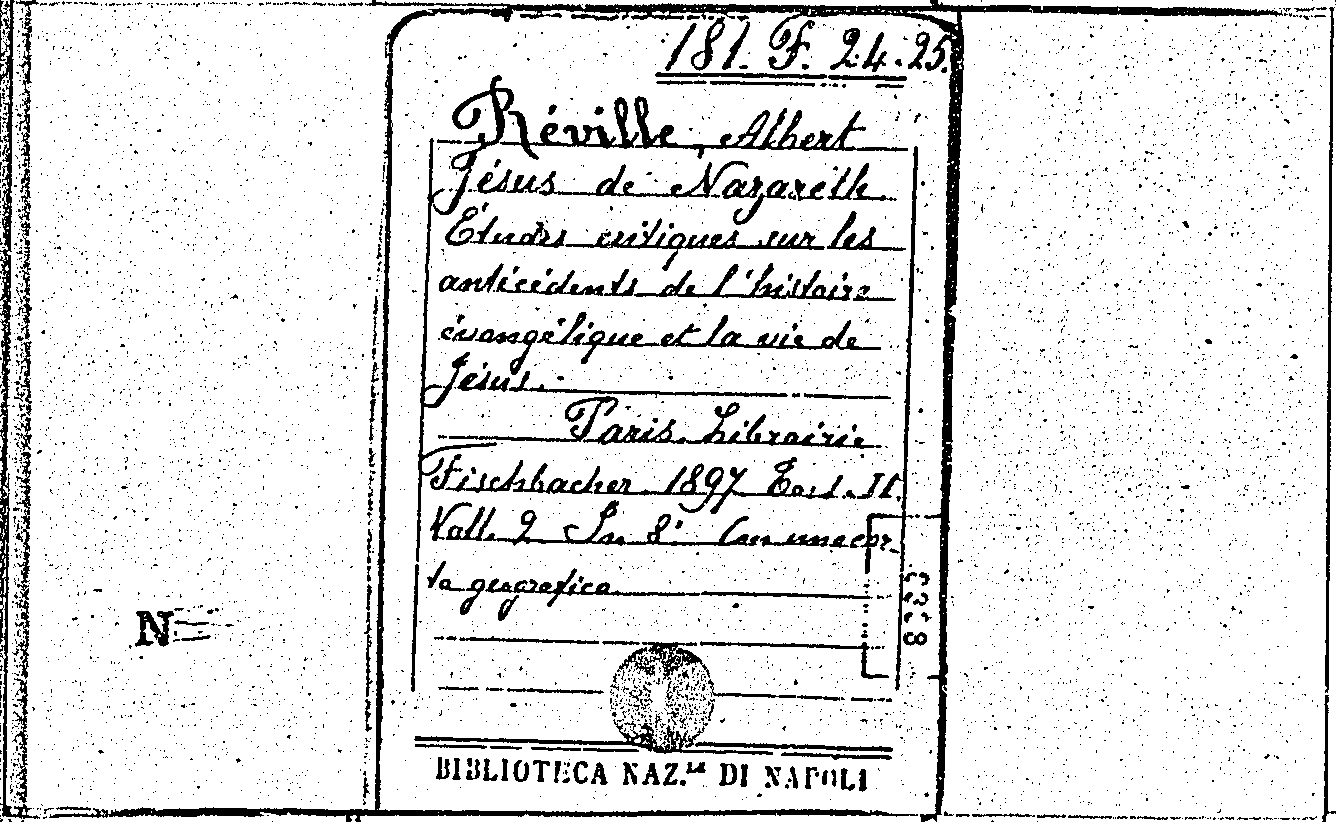 181. F. 24.25.
Réville, Albert
Jésus de Nazareth.
Etudes critiques sur les
antécédents de l'histoire
évangélique et la vie de
Jésus.
Paris. Librairie
Fischbacher 1897
Voll. 2 In 8° Con una car-
ta geografica
N
BIBLIOTECA NAZ.LE DI NAPOLI